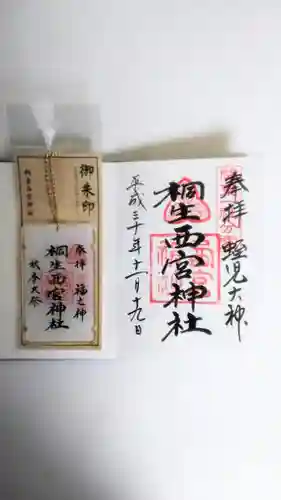 奉拝 蛭児大神
桐生西宮神社
平成三十年十一月十九日
御朱印
桐生西宮神社
奉拝 福之神
桐生西宮神社
秋季大祭